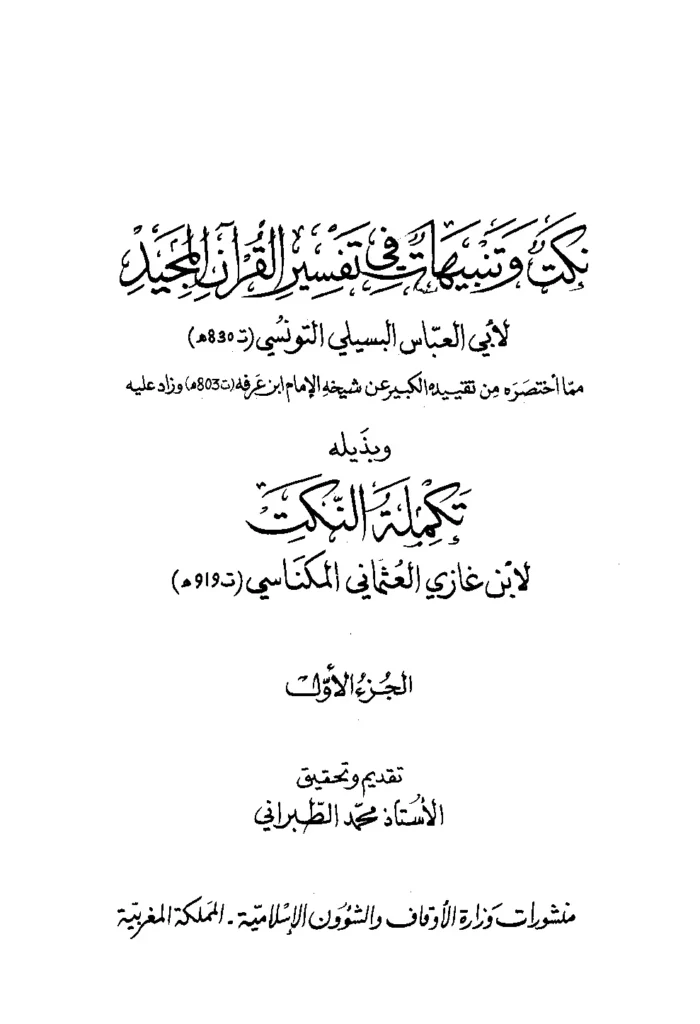 نكت وتنبيهات في تفسير القرآن المجيد
لأبي العبّاس البسيلي التونسي (ت 830هـ)
ممّا اختصَرَه مِن تقييده الكبير عن شيخه الإمام ابن عَرفة (ت 803هـ) وزاد عليه
وبذَيله
تَكمِلَةُ النّكَتِ
لابن غازي العُثماني المكنَاسي (ت 919هـ)
الجُزءُ الأوّل
تقديم وتحقيق
الأُستاذ محمّد الطّبراني
منشورات وَزارة الأوقاف والشؤون الإسْلاميّة - المَملكة المغربيّة